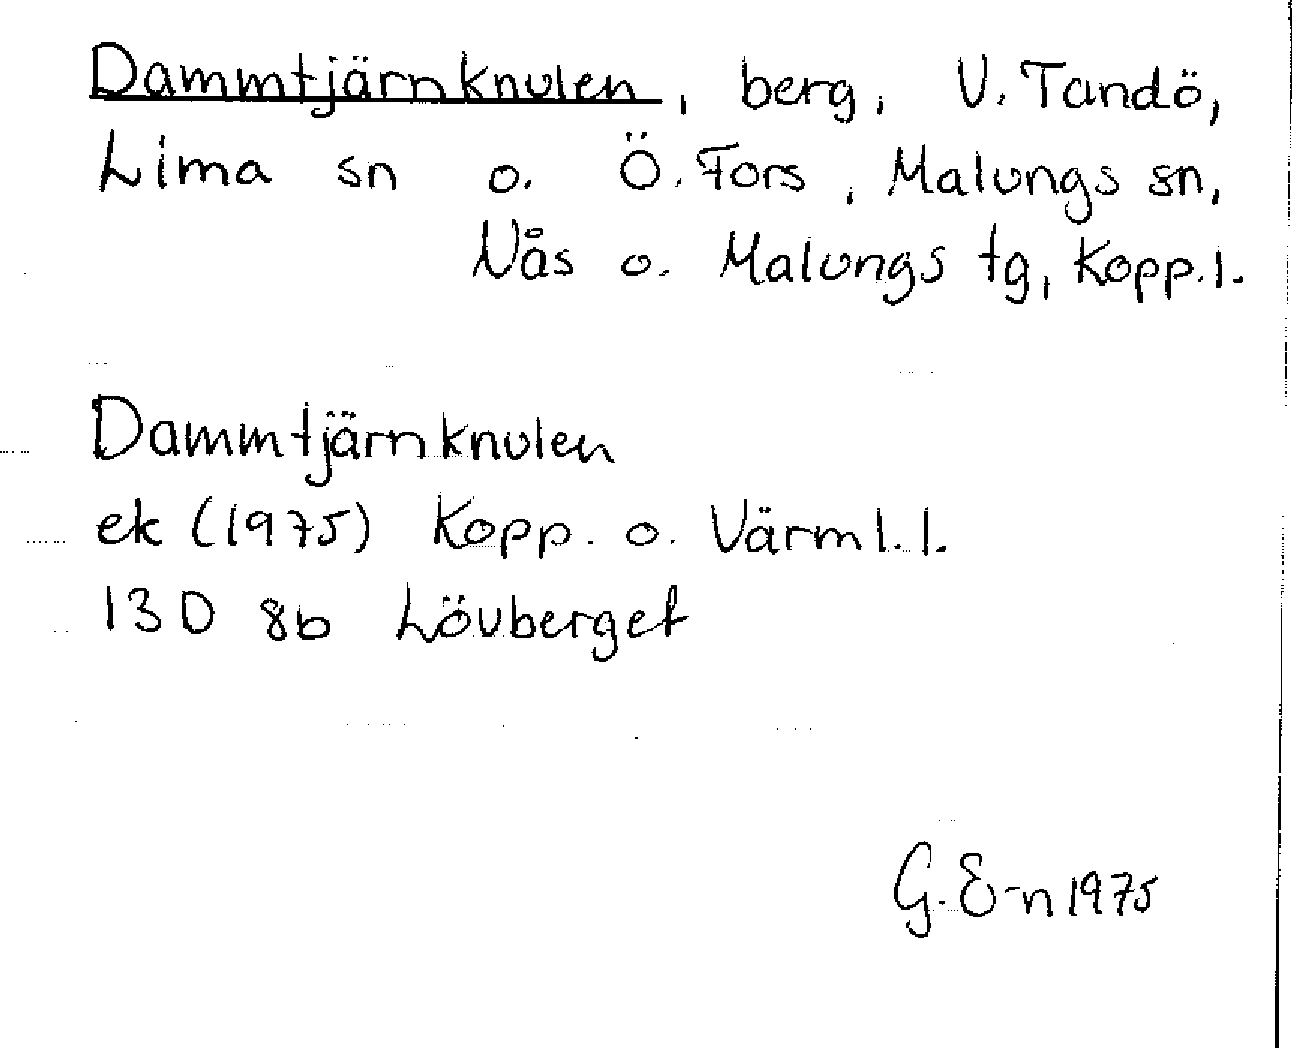 Dammtjärnknulen, berg, V. Tandö,
Lima sn o. Ö. Fors, Malungs sn,
Nås o. Malungs tg, Kopp. l.
Dammtjärnknulen
ek (1975) Kopp. o. Värml. l.
13D 8b Lövberget
G. E-n 1975